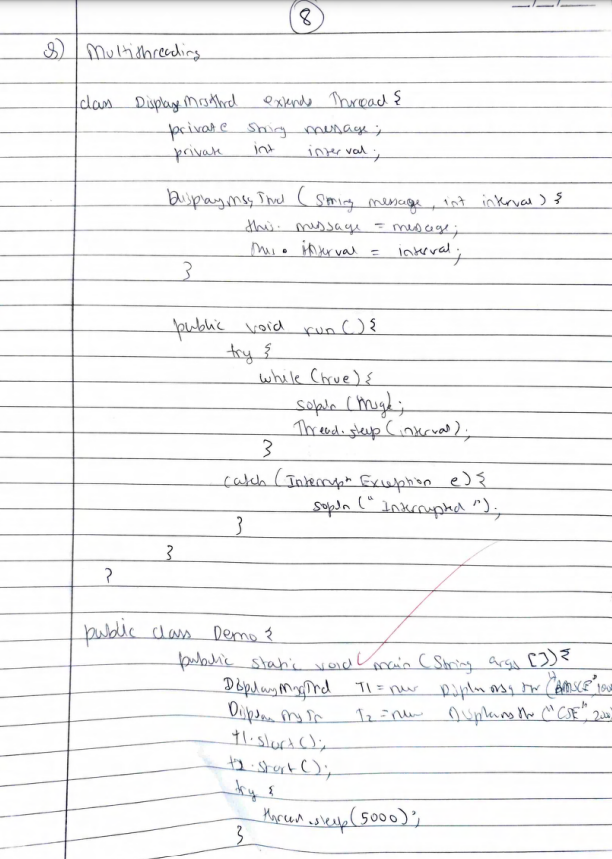 8
8) Multithreading
class DisplayMsgThrd extends Thread {
private String message;
private int interval;
DisplaymsgThrd (String message, int interval) {
this. message = message;
this. interval = interval;
}
public void run () {
try {
while (true) {
sopln (msg);
Thread.sleep (interval);
}
catch (Interrupt Exception e) {
sopln (" Interrupted ");
}
}
}
public class Demo {
public static void main (String args []) {
DisplayMsgThrd T1 = new ("BMSCE",
T2 = new ("CSE",
t1.start ();
t2.start ();
try {
thread.sleep (5000);
}